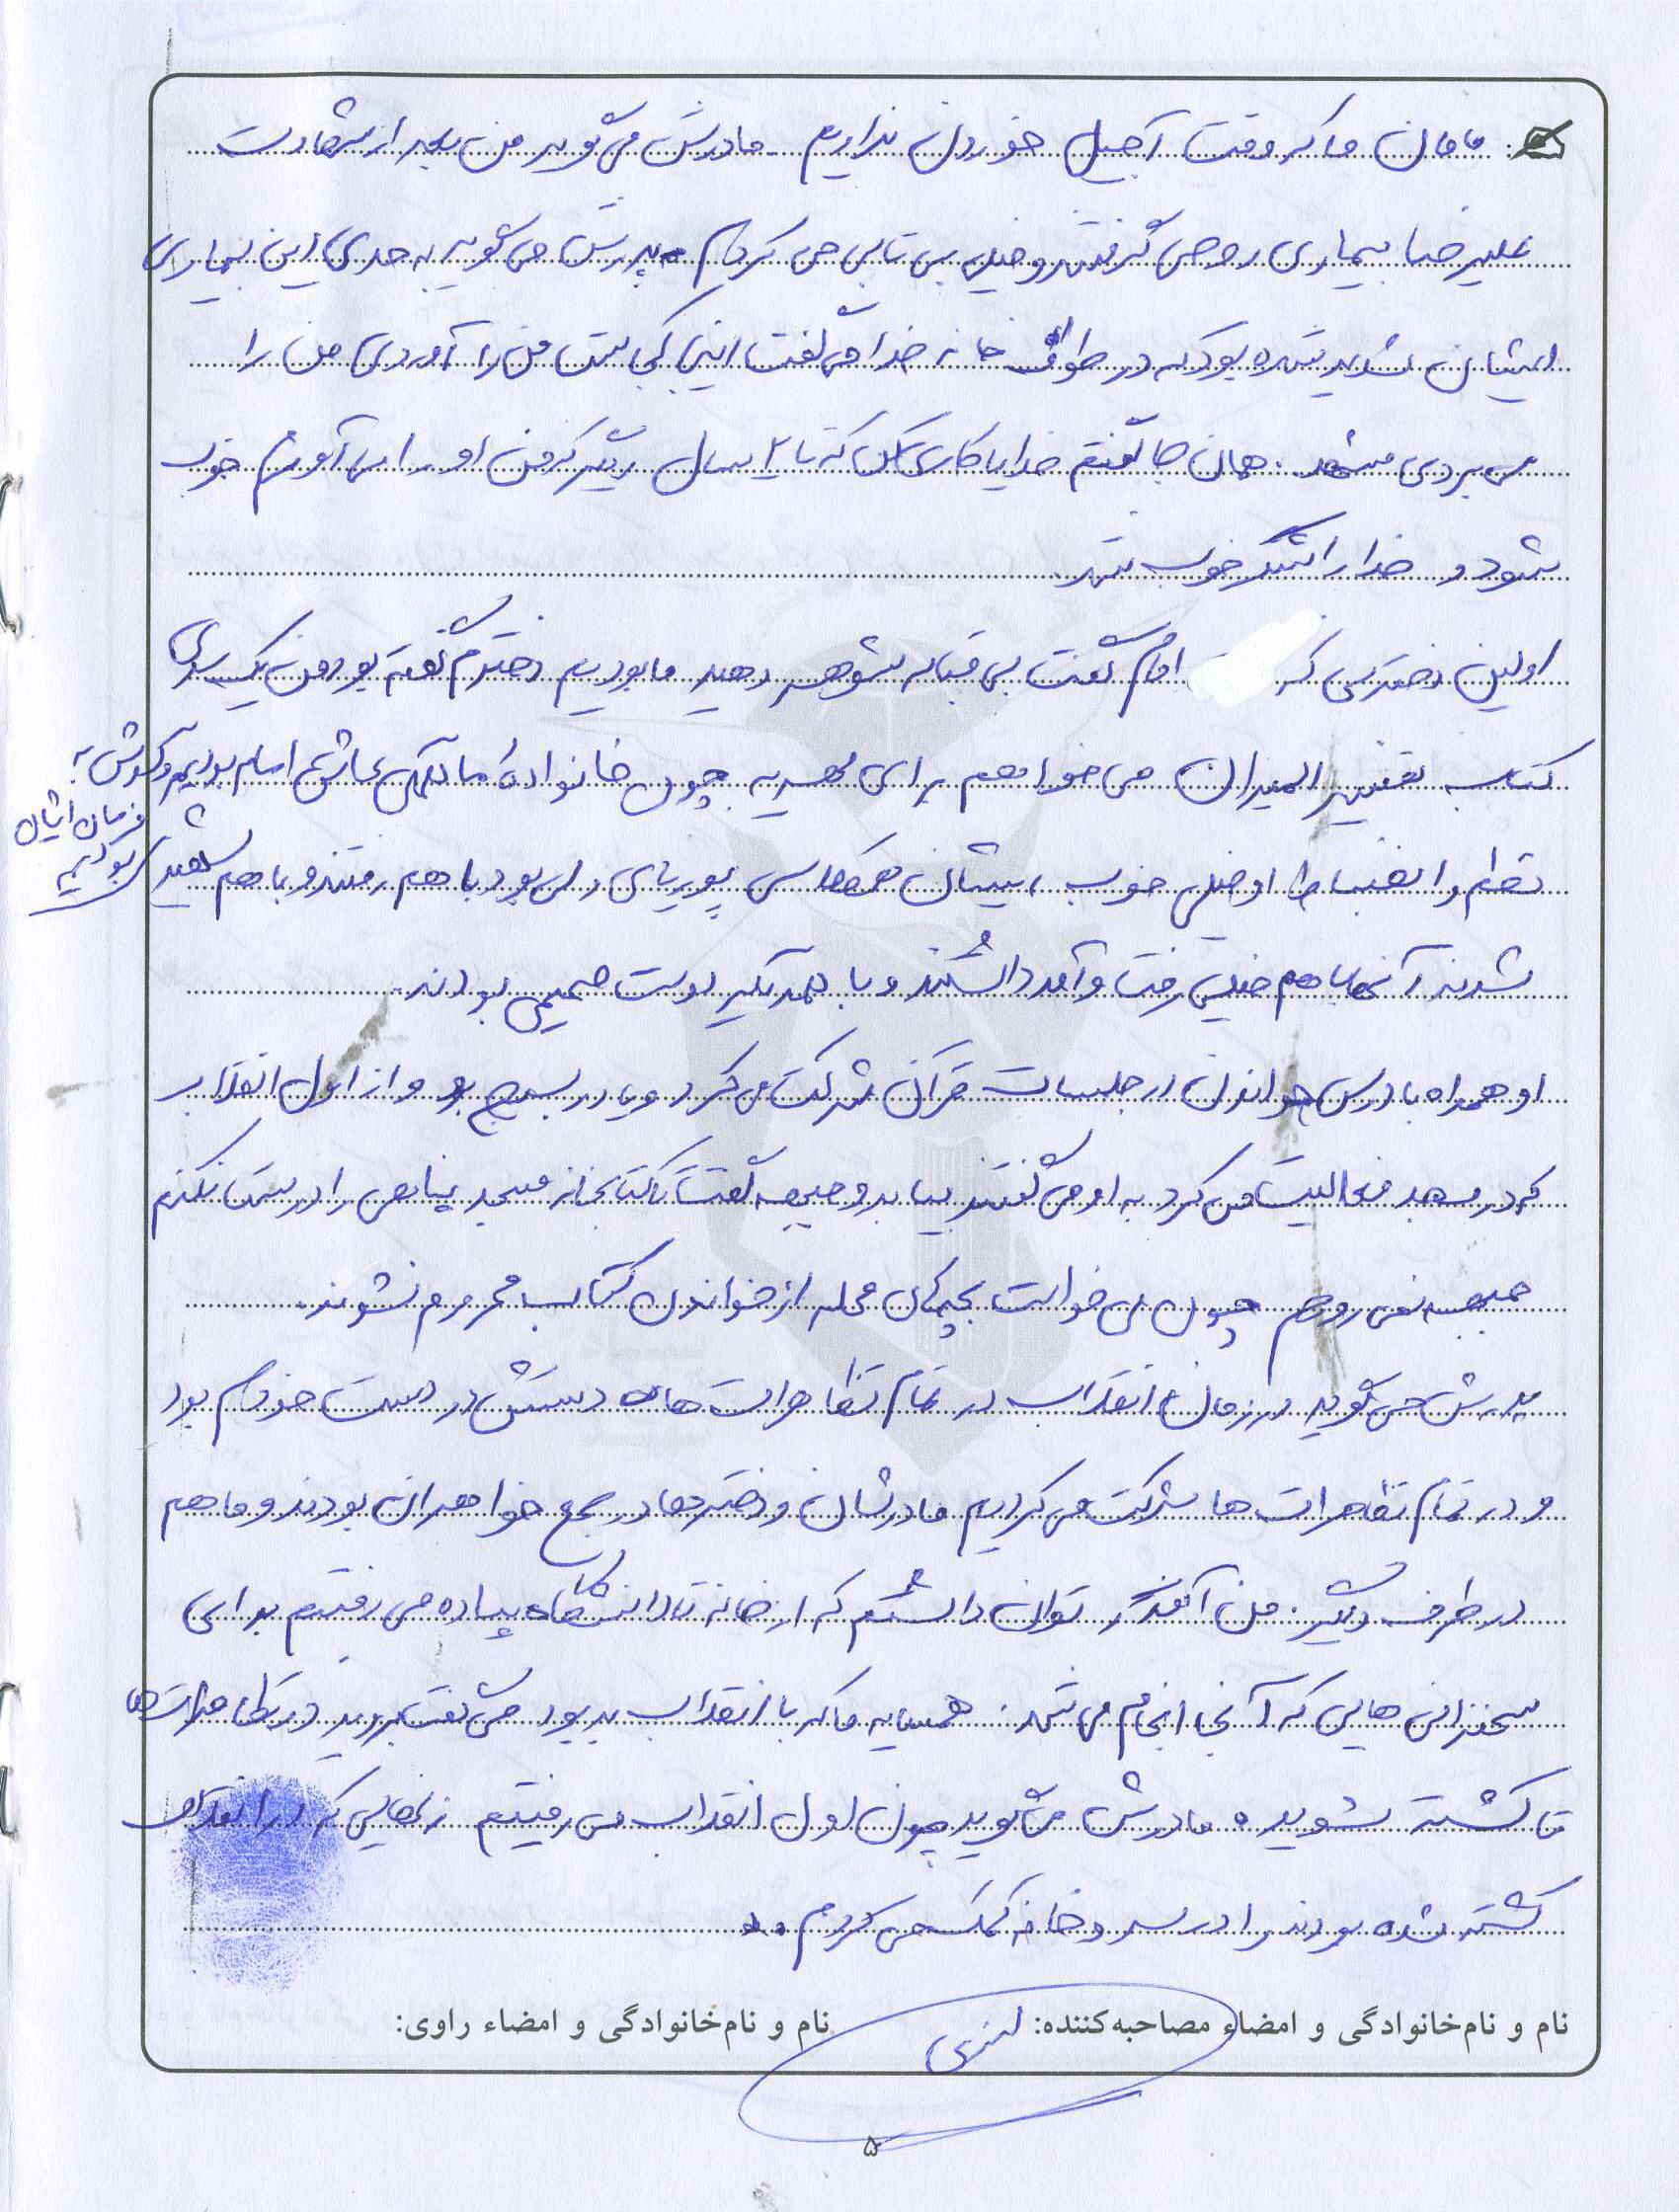 مامان ما که وقت آجیل خوردن نداریم. مادرش می گوید من بعد از شهادت
علیرضا بیماری روحی گرفتم و خیلی بی تابی می کردم. پدرش می گوید به حدی این بیماری
ایشان شدید شده بود که در طواف خانه خدا می گفت اینجا کجاست من را آوردی من را
می بردی مشهد. همان جا گفتم خدایا کاری بکن که تا سال دیگر که من او را می آورم خوب
شود و خدا را شکر خوب شد.
اولین دختری که امام گفت بی قباله شوهر دهید ما بودیم دخترم گفته بود من یک سری
کتاب تفسیر المیزان می خواهم برای مهریه چون خانواده ما همگی عاشق امام بودیم و گوش به
فرمان ایشان بودیم
نظم و انضباط او خیلی خوب، ایشان همکلاسی پوریای ولی بود با هم رفتند و با هم شهید
شدند آنها با هم خیلی رفت و آمد داشتند و با همدیگر دوست صمیمی بودند.
او همراه با درس خواندن در جلسات قرآن شرکت می کرد و در بسیج بود و از اول انقلاب
که در مسجد فعالیت می کرد به او می گفتند بیا برو جبهه گفت تا کتابخانه مسجد بنیامین را درست نکنم
جبهه نمی روم چون می خواست بچه های محله از خواندن کتاب محروم نشوند.
پدرش می گوید در زمان انقلاب در تمام تظاهرات ها دستش در دست خودم بود
و در تمام تظاهرات ها شرکت می کردیم مادرشان و دخترها در جمع خواهران بودند و ما هم
در طرف دیگر. من آنقدر توان داشتم که از خانه تا دانشگاه پیاده می رفتیم برای
سخنرانی هایی که آنجا انجام می شد. همسایه ما که با انقلاب بد بود می گفت بروید در تظاهرات ها
تا کشته شوید. مادرش می گوید چون اول انقلاب می رفتیم زنهایی که در انقلاب
کشته شده بودند را در سردخانه کمک می کردم.
نام و نام‌خانوادگی و امضاء مصاحبه‌کننده: نام و نام‌خانوادگی و امضاء راوی:
۵